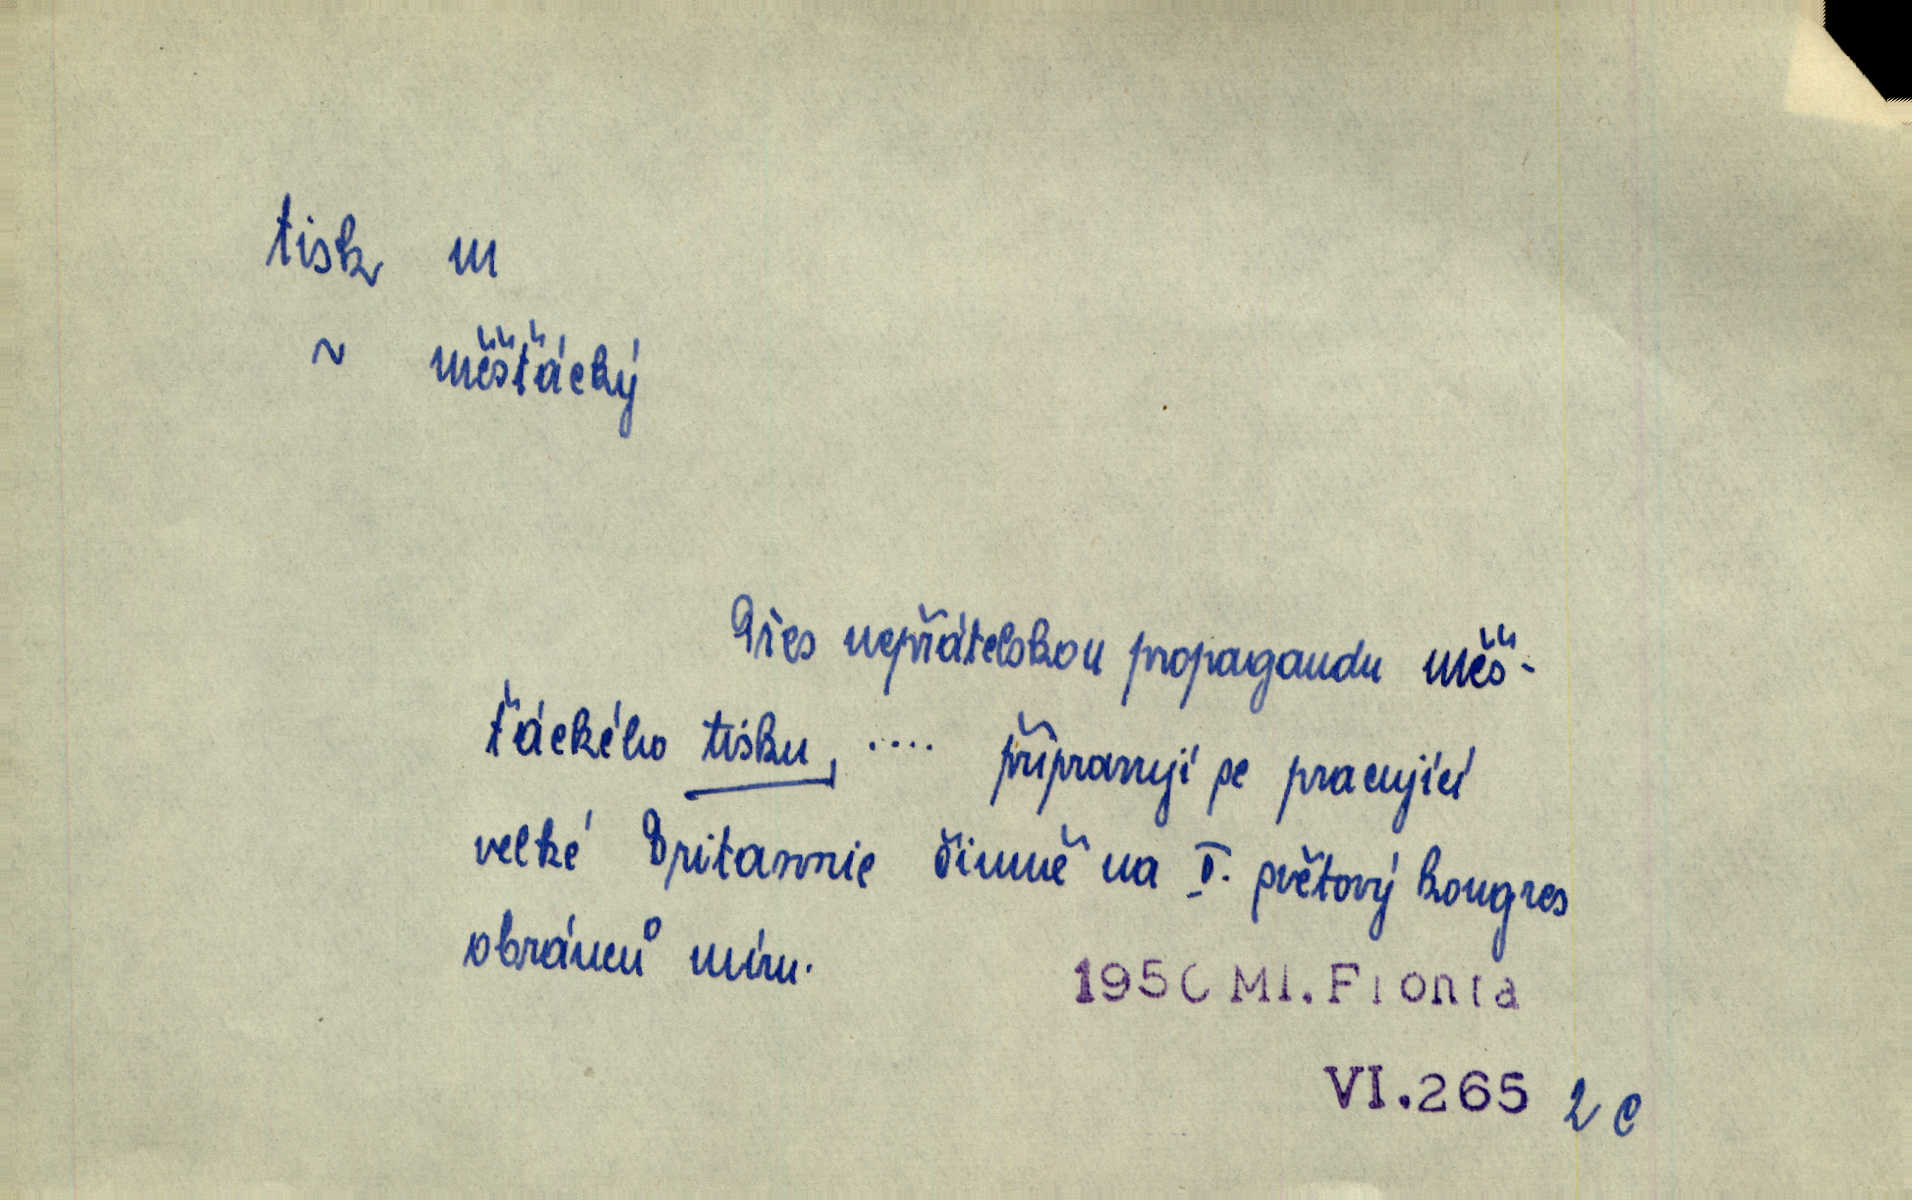 tisk m
~ měšťácký
Přes nepřátelskou propagandu měš-
ťáckého tisku, .... připravují se pracující
velké Britannie činně na II. světový kongres
obránců míru.
1950 Ml. Fronta
VI.265 2 c